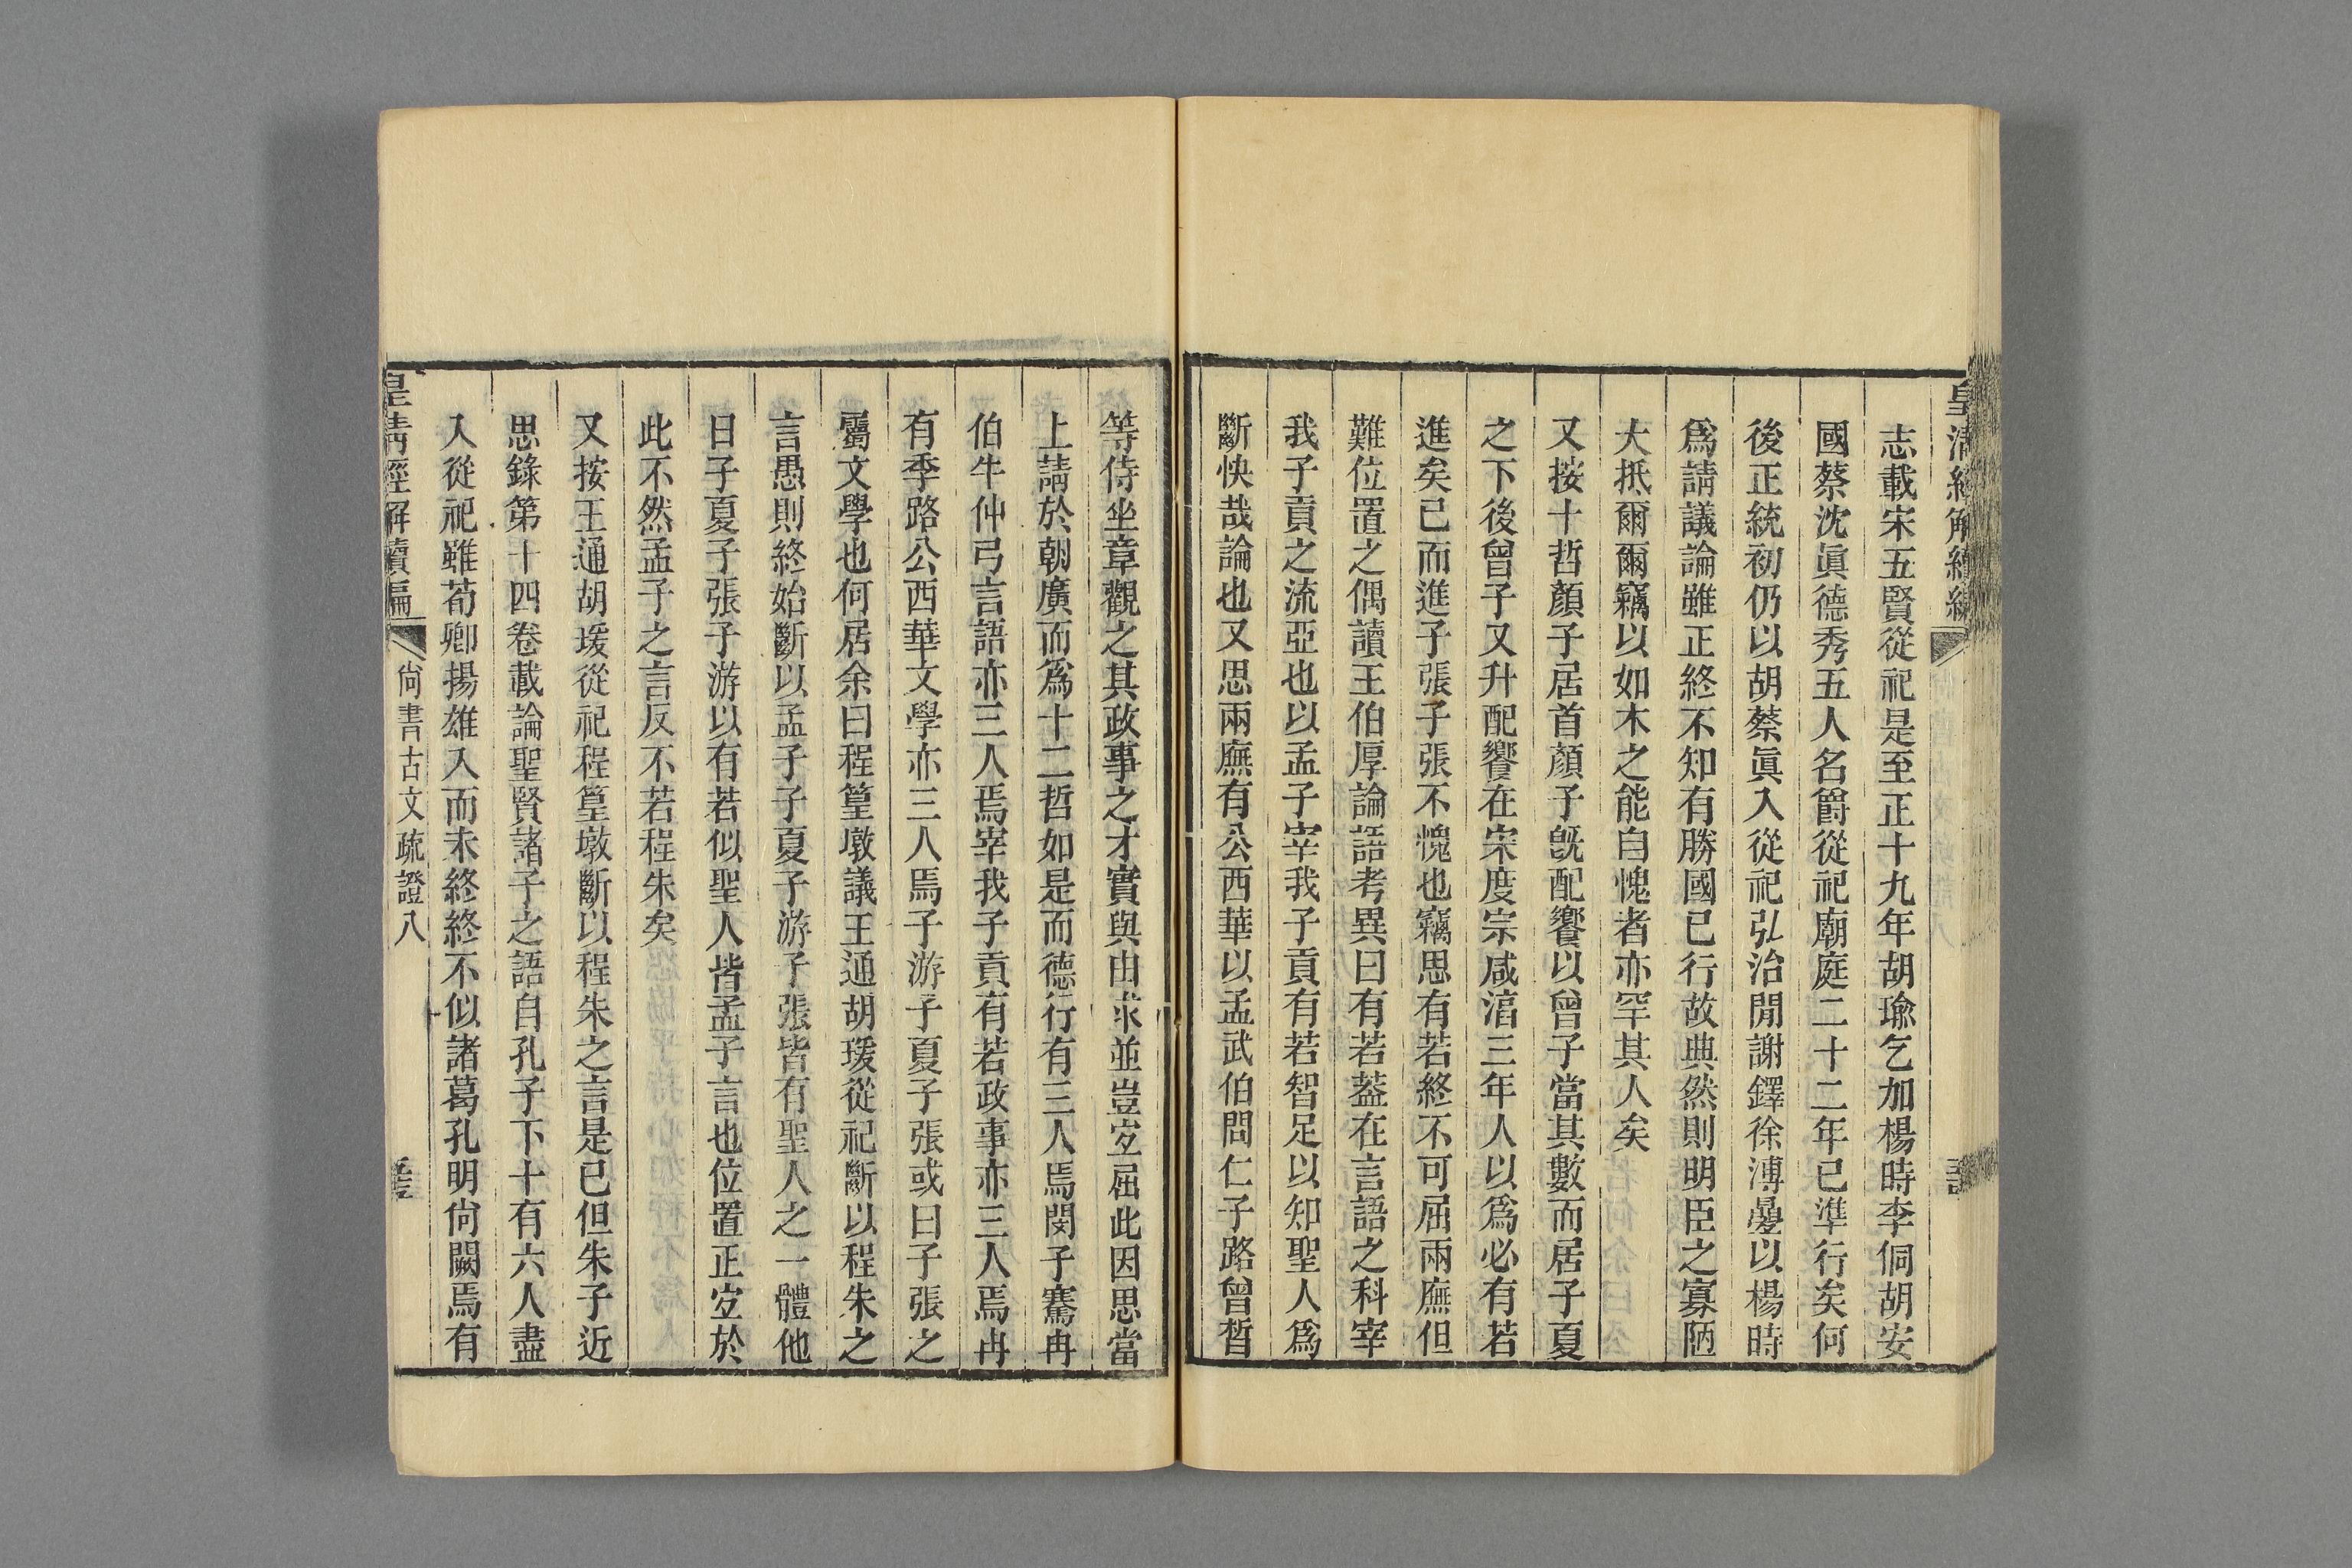 皇清經解續編
志載宋五賢從祀是至正十九年胡瑜乞加楊時李侗胡安
國蔡沈眞德秀五人名爵從祀廟庭二十二年已準行矣何
後正統初仍以胡蔡眞入從祀弘治閒謝鐸徐溥曑以楊時
爲請議論雖正終不知有勝國已行故典然則明臣之寡陋
大抵爾爾竊以如木之能自愧者亦罕其人矣
又按十哲顏子居首顏子旣配饗以曾子當其數而居子夏
之下後曾子又升配饗在宋度宗咸淳三年人以爲必有若
進矣已而進子張子張不愧也竊思有若終不可屈兩廡但
難位置之偶讀王伯厚論語考異曰有若葢在言語之科宰
我子貢之流亞也以孟子宰我子貢有若智足以知聖人爲
斷快哉論也又思兩廡有公西華以孟武伯問仁子路曾晳
等侍坐章觀之其政事之才實與由求並豈宐屈此因思當
上請於朝廣而爲十二哲如是而德行有三人焉閔子騫冉
伯牛仲弓言語亦三人焉宰我子貢有若政事亦三人焉冉
有季路公西華文學亦三人焉子游子夏子張或曰子張之
屬文學也何居余曰程篁墩議王通胡瑗從祀斷以程朱之
言愚則終始斷以孟子子夏子游子張皆有聖人之一體他
日子夏子張子游以有若似聖人皆孟子言也位置正宐於
此不然孟子之言反不若程朱矣
又按王通胡瑗從祀程篁墩斷以程朱之言是已但朱子近
思錄第十四卷載論聖賢諸子之語自孔子下十有六人盡
入從祀雖荀卿揚雄入而未終終不似諸葛孔明尙闕焉有
皇清經解續編
尙書古文疏證八